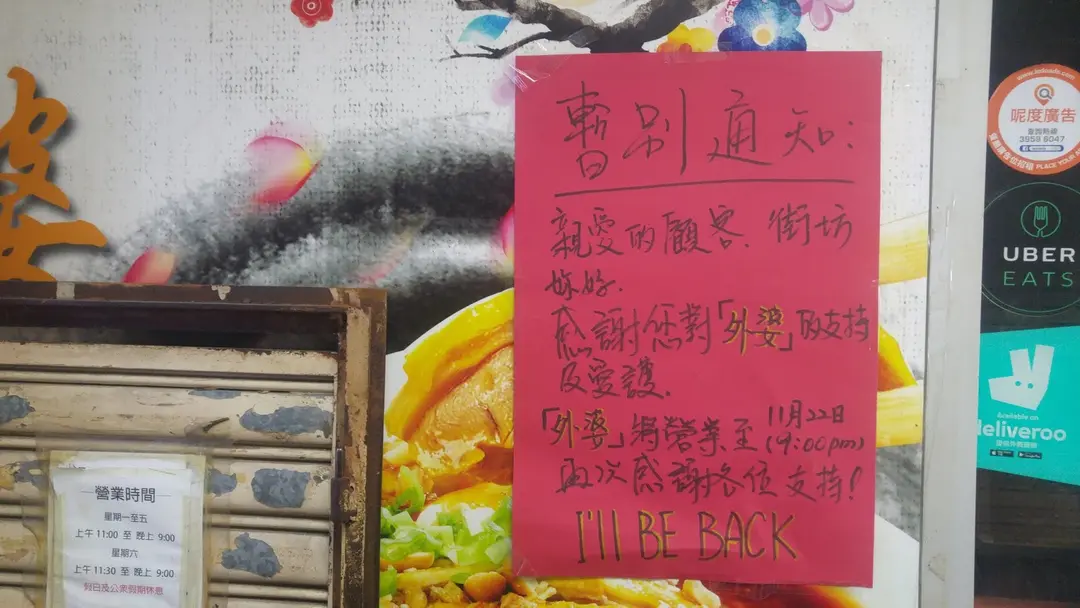 婆
暫別通知:
親愛的顧客、街坊
妳好.
感謝您對「外婆」的支持
及愛護.
「外婆」將營業至 11月22日
(9:00pm)
再次感謝各位支持!
I'll BE BACK
營業時間
星期一至五
上午 11:00 至 晚上 9:00
星期六
上午 11:30 至 晚上 9:00
假日及公眾假期休息
呢度廣告
查詢熱線
3959 6047
PLACE YOUR
UBER
EATS
Available on
deliveroo